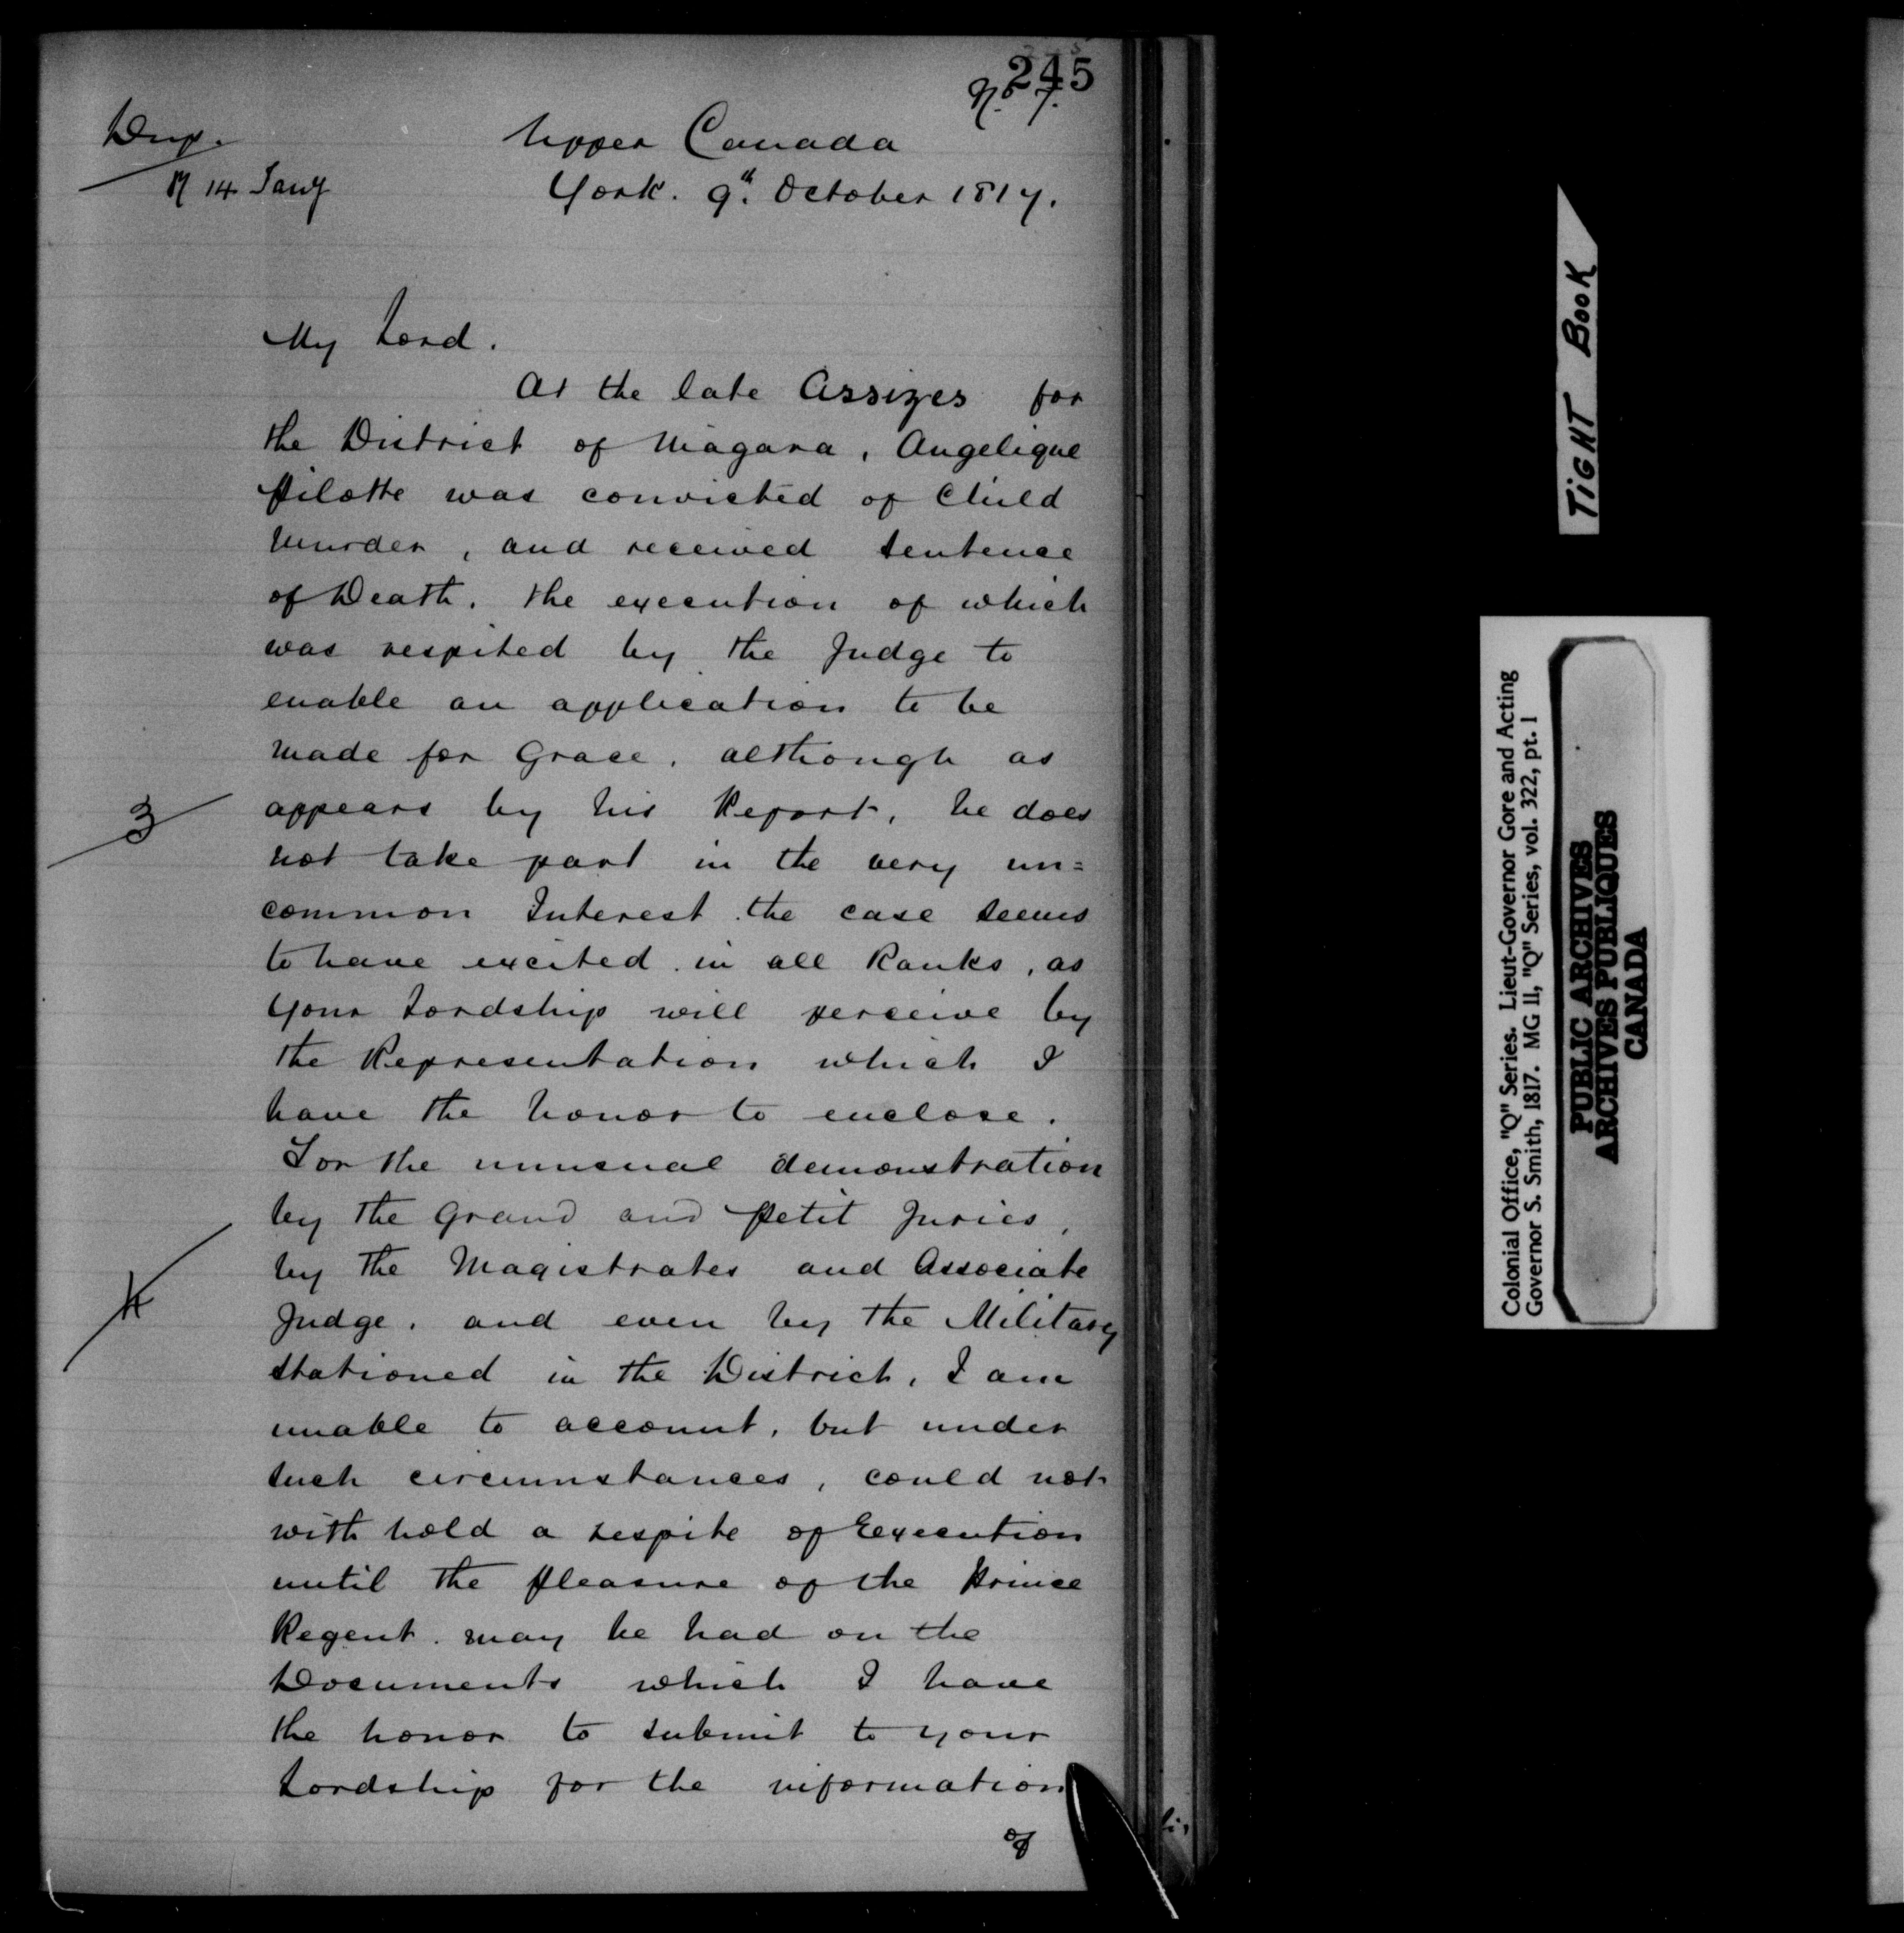 245
No 7.
Dup.
R 14 Jany
Upper Canada
York. 9th. October 1817.
My Lord.
At the late Assizes for
the District of Niagara, Angelique
Pilotte was convicted of Child
Murder, and received sentence
of Death. the execution of which
was respited by the Judge to
enable an application to be
made for Grace. although as
appears by his Report, he does
not take part in the very un=
common Interest the case seems
to have excited in all Ranks, as
Your Lordship will perceive by
the Representation which I
have the honor to enclose.
For the unusual demonstration
by the Grand and Petit Juries,
by the Magistrates and Associate
Judge, and even by the Military
stationed in the District, I am
unable to account, but under
such circumstances, could not
with hold a respite of Execution
until the pleasure of the Prince
Regent may be had on the
Documents which I have
the honor to submit to your
Lordship for the information
of
3
4
TIGHT BOOK
Colonial Office, "Q" Series. Lieut-Governor Gore and Acting
Governor S. Smith, 1817. MG 11, "Q" Series, vol. 322, pt. 1
PUBLIC ARCHIVES
ARCHIVES PUBLIQUES
CANADA